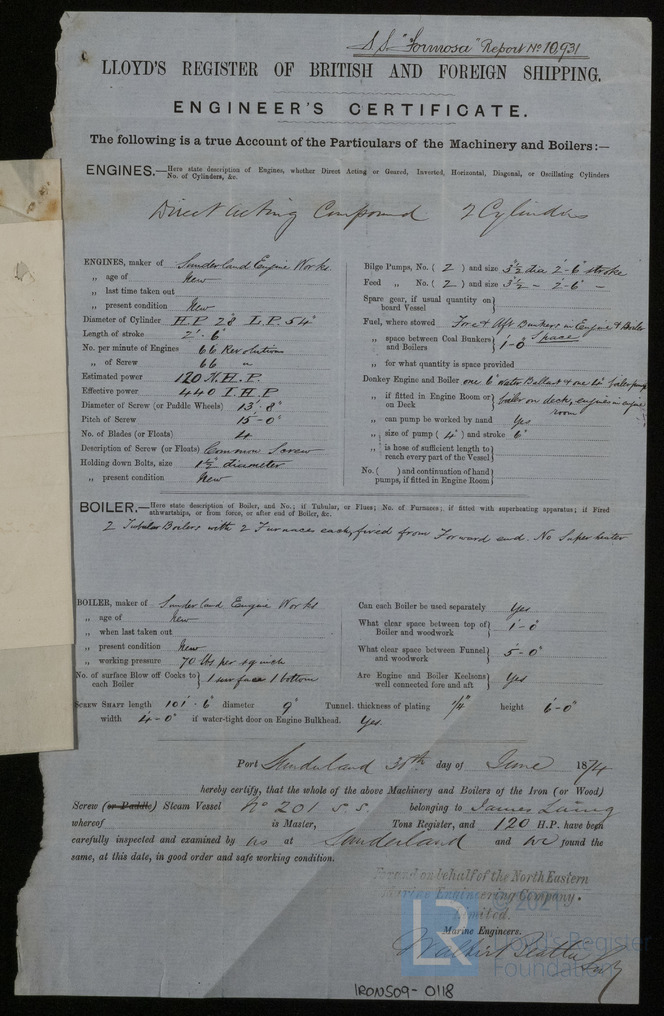 S.S. "Formosa" Report No 10,931
LLOYD'S REGISTER OF BRITISH AND FOREIGN SHIPPING.
ENGINEER'S CERTIFICATE.
The following is a true Account of the Particulars of the Machinery and Boilers:—
ENGINES.—Here state description of Engines, whether Direct Acting or Geared, Inverted, Horizontal, Diagonal, or Oscillating Cylinders
No. of Cylinders, &c.
Direct Acting Compound 2 Cylinders
ENGINES, maker of Sunderland Engine Works
„ age of New
„ last time taken out
„ present condition New
Diameter of Cylinder H.P. 28" L.P. 54"
Length of stroke 2'-6"
No. per minute of Engines 66 Revolutions
„ of Screw 66 "
Estimated power 120 N.H.P.
Effective power 440 I.H.P
Diameter of Screw (or Paddle Wheels) 13'-8"
Pitch of Screw 15'-0"
No. of Blades (or Floats) 4
Description of Screw (or Floats) Common Screw
Holding down Bolts, size 1½" diameter
„ present condition New
Bilge Pumps, No. ( 2 ) and size 3½" dia 2'-6" stroke
Feed „ No. ( 2 ) and size 3½ - 2'-6" -
Spare gear, if usual quantity on
board Vessel
Fuel, where stowed Fore & Aft Bunkers in Engine & Boiler
Space
„ space between Coal Bunkers
and Boilers 1'-0"
„ for what quantity is space provided
Donkey Engine and Boiler one 6" Water Ballast & one boiler pump
„ if fitted in Engine Room or
on Deck boiler on deck, engines in engine
room
„ can pump be worked by hand Yes
„ size of pump ( 4" ) and stroke 6"
„ is hose of sufficient length to
reach every part of the Vessel
No. ( ) and continuation of hand
pumps, if fitted in Engine Room
BOILER.—Here state description of Boiler, and No.; if Tubular, or Flues; No. of Furnaces; if fitted with superheating apparatus; if Fired
athwartships, or from force, or after end of Boiler, &c.
2 Tubular Boilers with 2 Furnaces each, fired from Forward end. No Super heater
BOILER, maker of Sunderland Engine Works
„ age of New
„ when last taken out
„ present condition New
„ working pressure 70 lbs per sq inch
No. of surface Blow off Cocks to
each Boiler 1 surface 1 bottom
Can each Boiler be used separately Yes
What clear space between top of
Boiler and woodwork 1'-0"
What clear space between Funnel
and woodwork 5'-0"
Are Engine and Boiler Keelsons
well connected fore and aft Yes
SCREW SHAFT length 101'-6" diameter 9" Tunnel, thickness of plating 1/4" height 6'-0"
width 4'-0" if water-tight door on Engine Bulkhead. Yes.
Port Sunderland day of June 1874
hereby certify, that the whole of the above Machinery and Boilers of the Iron (or Wood)
Screw (or Paddle) Steam Vessel No 201 S.S. belonging to James Laing
whereof is Master, Tons Register, and 120 H.P. have been
carefully inspected and examined by us at Sunderland and we found the
same, at this date, in good order and safe working condition.
For and on behalf of the North Eastern
Marine Engineering Company.
Limited.
Marine Engineers.
© 2021
LR
Lloyd's Register
Foundation
IRON509-0118